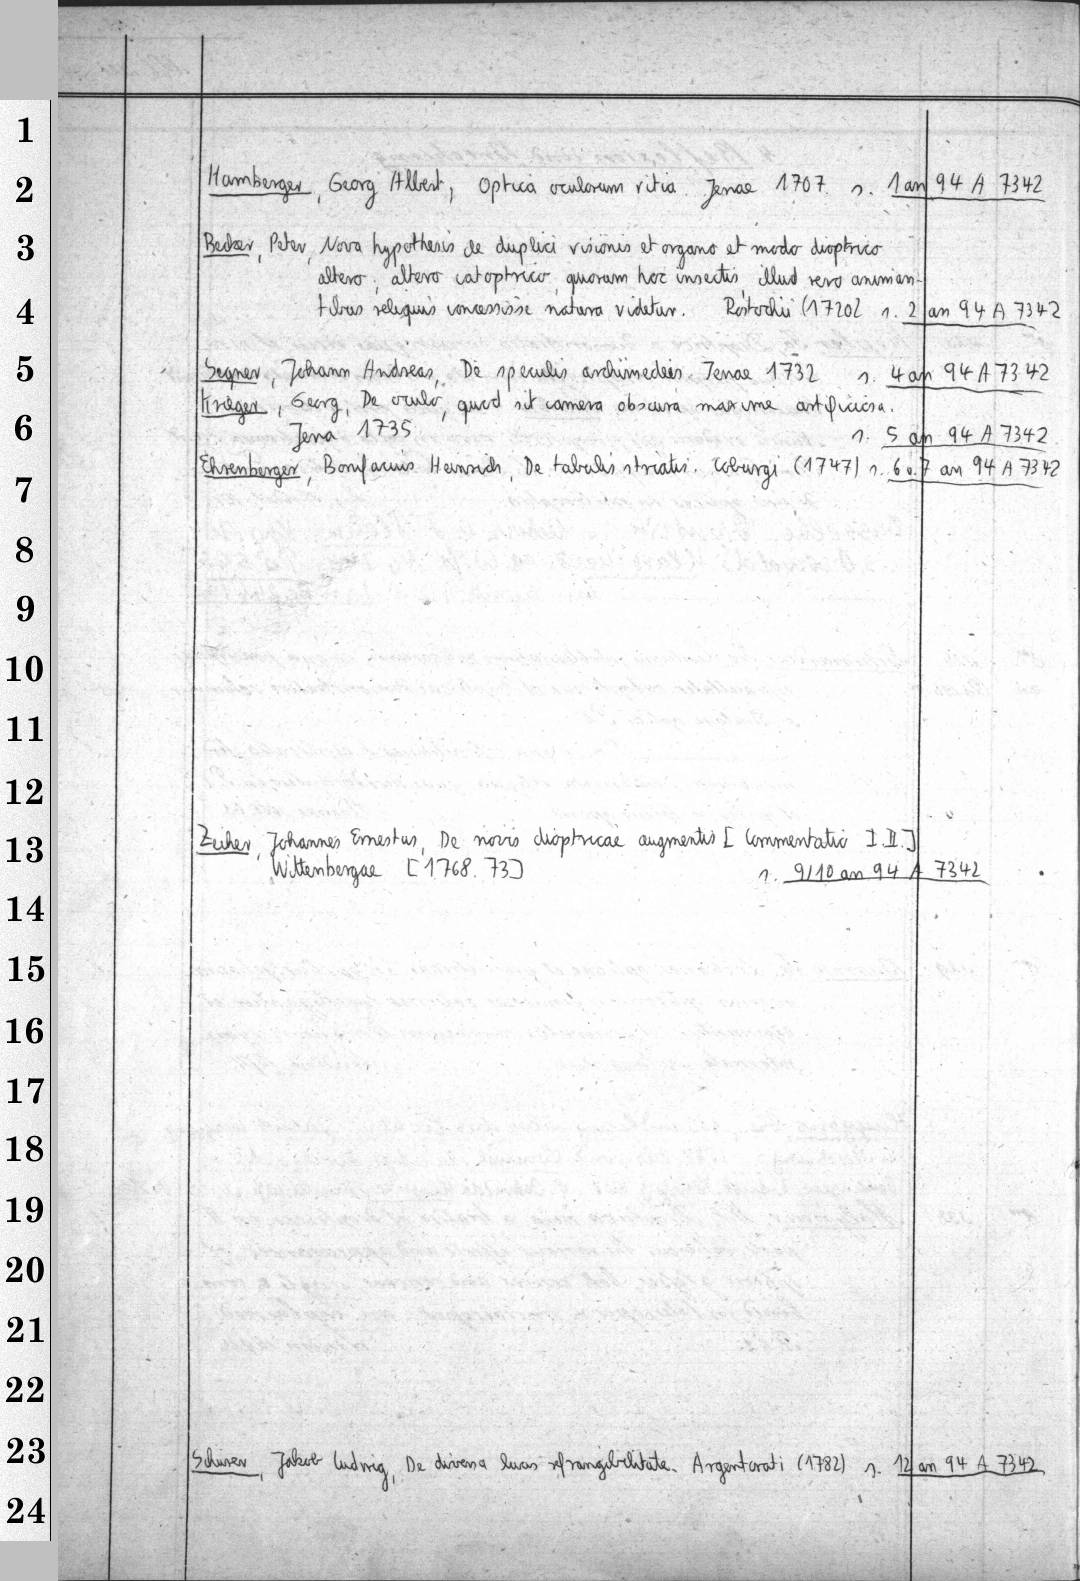 1
2
3
4
5
6
7
8
9
10
11
12
13
14
15
16
17
18
19
20
21
22
23
24
Hamberger, Georg Albert, Optica oculorum vitia. Jenae 1707. s. 1 an 94 A 7342
Becker, Peter, Nova hypothesis de duplici visionis et organo et modo dioptrico
altero, altero catoptrico, quorum hoc insectis, illud vero animan-
tibus reliquis concessisse natura videtur. Rostochii (1720) s. 2 an 94 A 7342
Segner, Johann Andreas, De speculis archimedeis. Jenae 1732 s. 4 an 94 A 7342
Krüger, Georg, De oculo, quod sit camera obscura maxime artificiosa.
Jena 1735 s. 5 an 94 A 7342
Ehrenberger, Bonifacius Heinrich, De tabulis striatis. Coburgi (1747) s. 6 u. 7 an 94 A 7342
Zeiher, Johannes Ernestus, De novis dioptricae augmentis [Commentatio I. II.]
Wittenbergae [1768. 73] s. 9/10 an 94 A 7342
Schurer, Jakob Ludwig, De diversa lucis refrangibilitate. Argentorati (1782) s. 12 an 94 A 7342